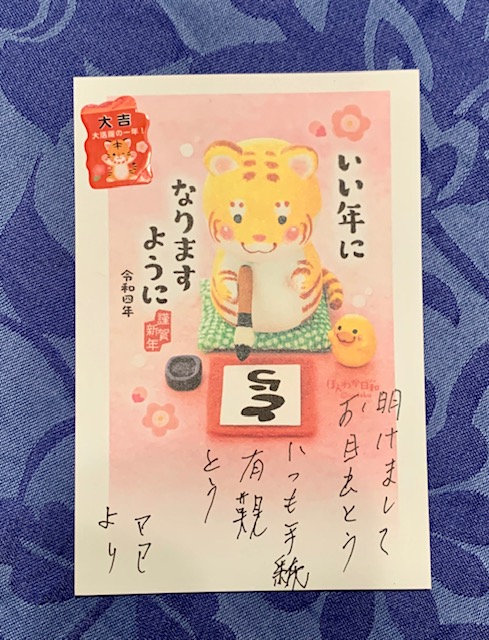 大吉
大活躍の一年!
いい年に
なります
ように
令和四年
謹賀
新年
とら
ほんわか日和
明けまして
お目出とう
いつも手紙
有難
とう
より